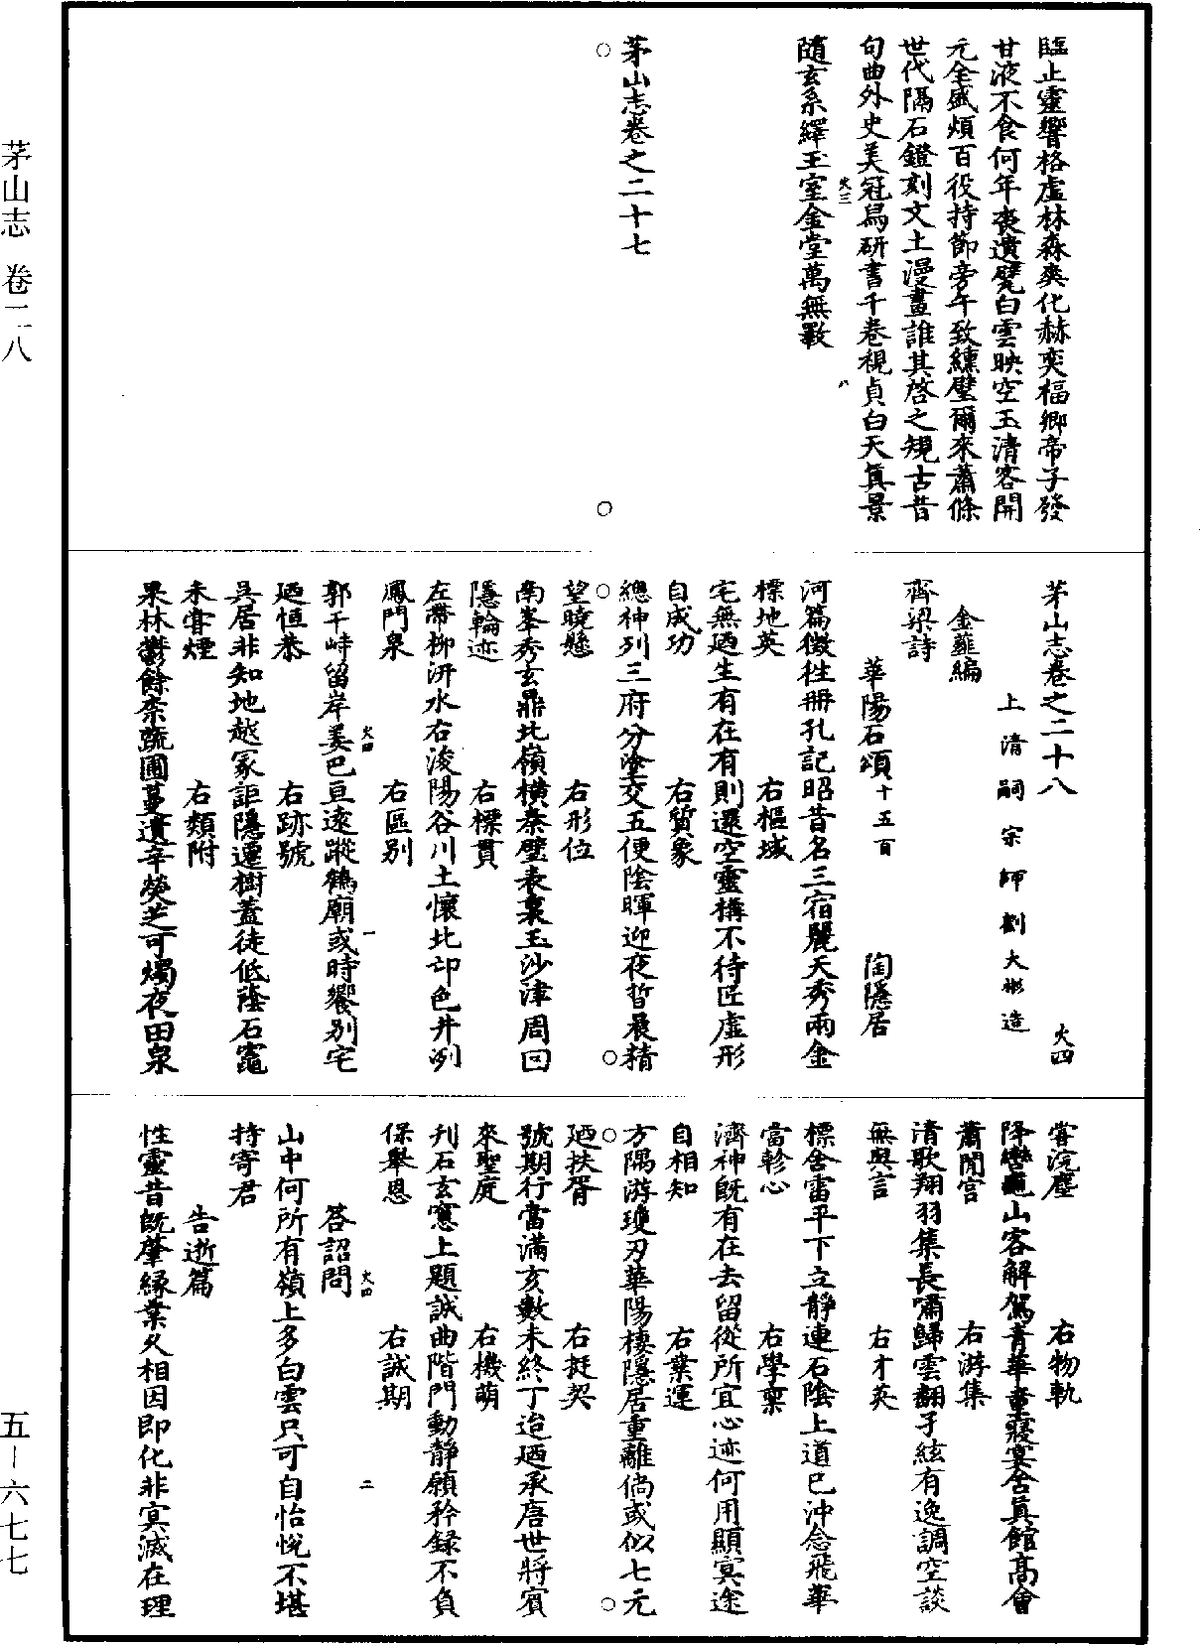 茅山志 卷二八
五-六七七
臨止靈響格虛林森爽化赫奕福卿帝子發
甘液不食何年喪遺甓白雲映空玉清客開
元全盛煩百役持節旁午致纁璧爾來蕭條
世代隔石鐙刻文土漫畫誰其啓之規古昔
句曲外史美冠舄研書千卷視貞白天真景
隨玄系繹玉室金堂萬無斁
火三
八
茅山志卷之二十七
茅山志卷之二十八
火四
上清嗣宗師劉大彬造
金薤編
齊梁詩
華陽石頌十五首 陶隱居
河篇徵往冊孔記昭昔名三宿麗天秀兩金
標地英 右樞域
宅無乃生有在有則還空靈構不待匠虛形
自成功 右質象
總神列三府分途交五便陰暉迎夜晢晨精
望曉懸 右形位
南峯秀玄鼎北嶺橫秦璧表裏玉沙津周回
隱輪迹 右標貫
左帶柳汧水右浚陽谷川土懷北邙色井洌
鳳門泉 右區別
郭千峙留岸姜巴亘遠蹤鶴廟或時饗別宅
迺恒恭 右跡號
火四
一
吳居非知地越冢詎隱遷樹蓋徒低蔭石竈
未嘗煙 右類附
果林鬱餘柰蔬圃蔓遺辛熒芝可燭夜田泉
嘗浣塵 右物軌
降轡龜山客解駕青華童寢宴含真館高會
蕭閒宮 右游集
清歌翔羽集長嘯歸雲翻子絃有逸調空談
無與言 右才英
標舍雷平下立靜連石陰上道已沖念飛華
當軫心 右學稟
濟神既有在去留從所宜心迹何用顯冥途
自相知 右業運
方隅游瓊刃華陽棲隱居重離倘或似七元
迺扶胥 右挺契
號期行當滿亥數未終丁迨迺承唐世將賓
來聖庭 右機萌
刋石玄窻上題誠曲階門動靜願矜録不負
保舉恩 右誠期
火四
二
答詔問
山中何所有嶺上多白雲只可自怡悅不堪
持寄君
告逝篇
性靈昔既肇緣業久相因即化非冥滅在理